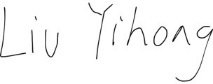 Liu Yihong